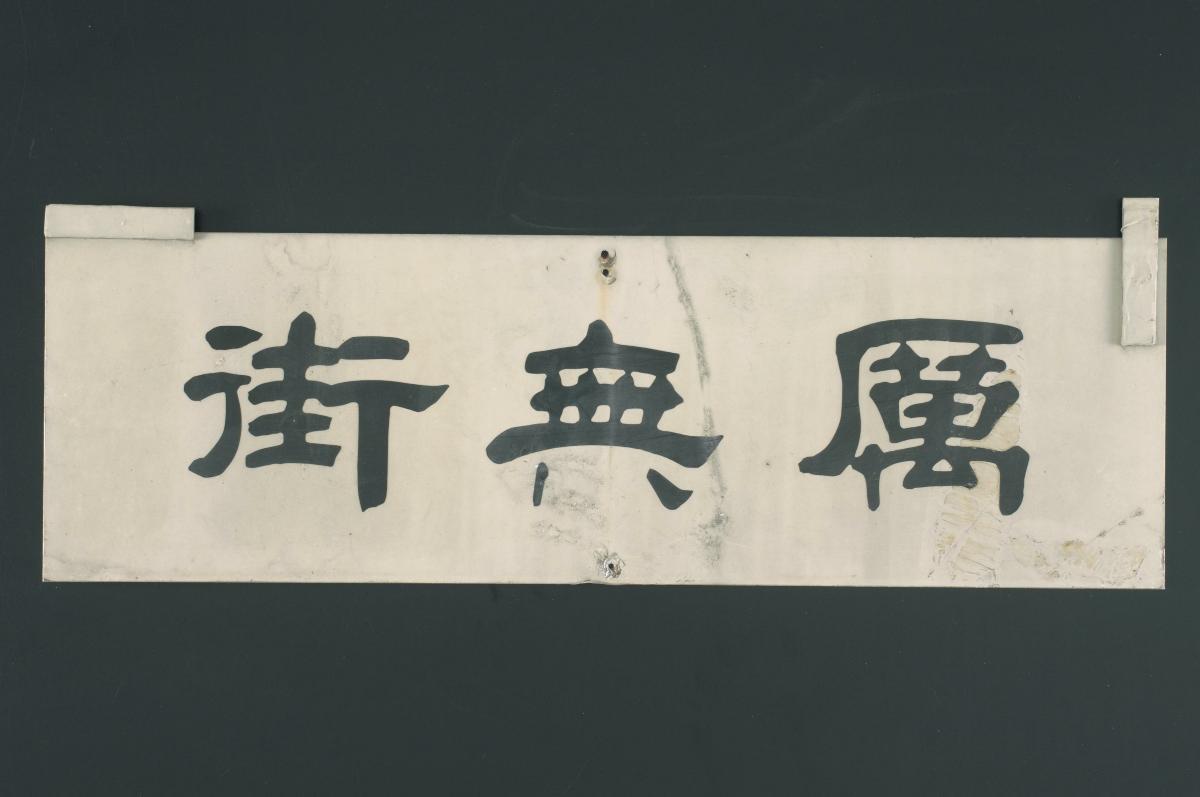 厲無街